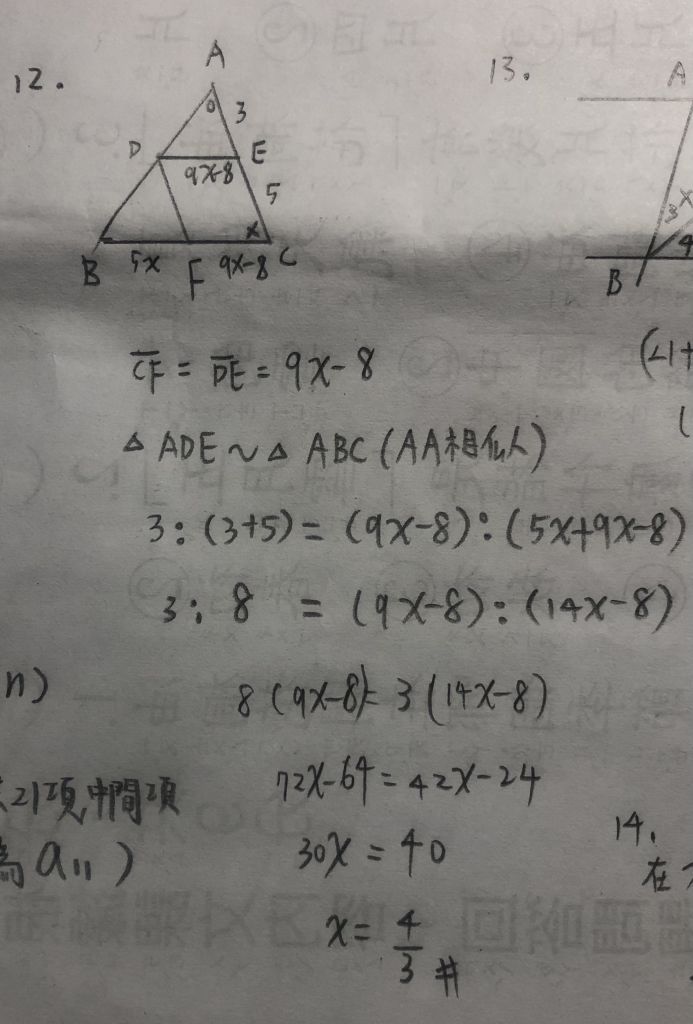 12.
A
3
D
E
9x-8
5
x
B
5x
F
9x-8
C
CF = DE = 9x-8
△ADE ~ △ABC (AA相似)
3 : (3+5) = (9x-8) : (5x+9x-8)
3 : 8 = (9x-8) : (14x-8)
8(9x-8) = 3(14x-8)
72x-64 = 42x-24
30x = 40
x = 4/3 #
n)
21項,中間項
為 a₁₁)
13.
A
3
x
4
B
(∠1+
(
14.
在